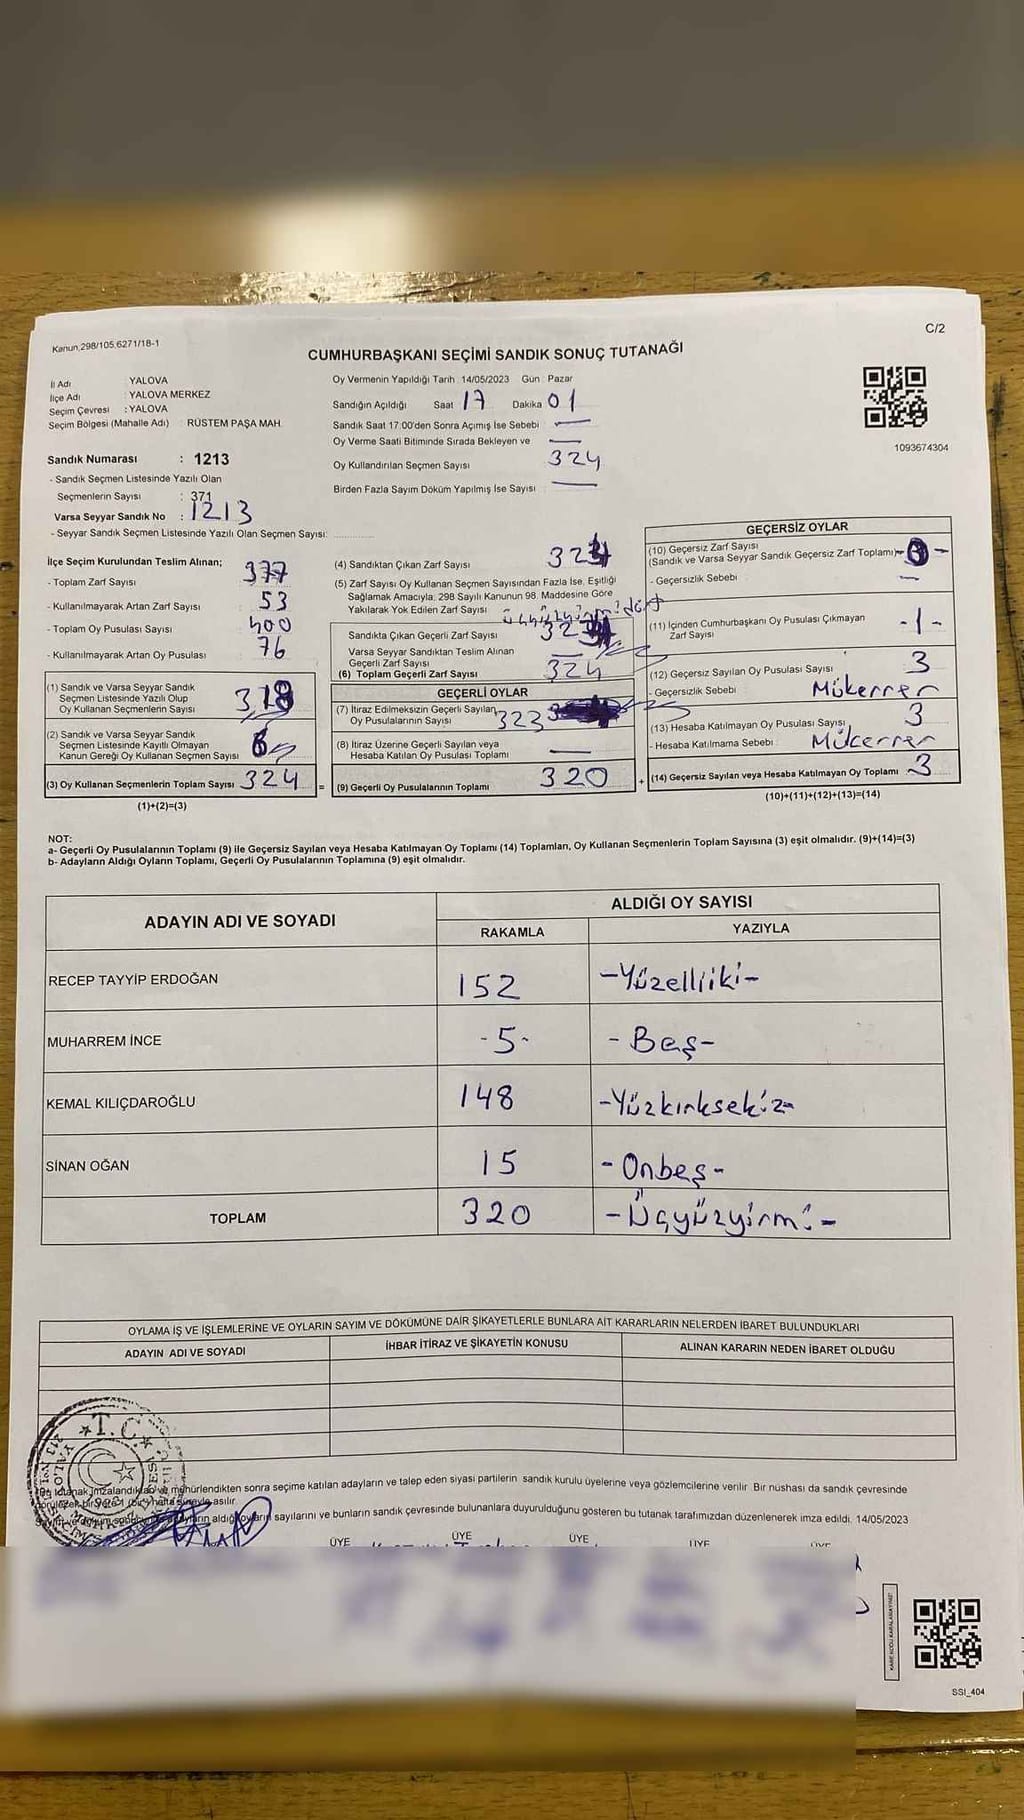 Kanun 298/105,6271/18-1
C/2
CUMHURBAŞKANI SEÇİMİ SANDIK SONUÇ TUTANAĞI
İl Adı : YALOVA
İlçe Adı : YALOVA MERKEZ
Seçim Çevresi : YALOVA
Seçim Bölgesi (Mahalle Adı) : RÜSTEM PAŞA MAH.
Sandık Numarası : 1213
- Sandık Seçmen Listesinde Yazılı Olan
Seçmenlerin Sayısı : 371
Varsa Seyyar Sandık No : 1213
- Seyyar Sandık Seçmen Listesinde Yazılı Olan Seçmen Sayısı:
Oy Vermenin Yapıldığı Tarih :14/05/2023 Gün : Pazar
Sandığın Açıldığı Saat 17 Dakika 01
Sandık Saat 17:00'den Sonra Açımış İse Sebebi —
Oy Verme Saati Bitiminde Sırada Bekleyen ve —
Oy Kullandırılan Seçmen Sayısı 324
Birden Fazla Sayım Döküm Yapılmış İse Sayısı : —
1093674304
İlçe Seçim Kurulundan Teslim Alınan;
- Toplam Zarf Sayısı 377
- Kullanılmayarak Artan Zarf Sayısı 53
- Toplam Oy Pusulası Sayısı 400
- Kullanılmayarak Artan Oy Pusulası 76
(1) Sandık ve Varsa Seyyar Sandık
Seçmen Listesinde Yazılı Olup
Oy Kullanan Seçmenlerin Sayısı 318
(2) Sandık ve Varsa Seyyar Sandık
Seçmen Listesinde Kayıtlı Olmayan
Kanun Gereği Oy Kullanan Seçmen Sayısı 6
(3) Oy Kullanan Seçmenlerin Toplam Sayısı 324
(1)+(2)=(3)
(4) Sandıktan Çıkan Zarf Sayısı 324
(5) Zarf Sayısı Oy Kullanan Seçmen Sayısından Fazla İse, Eşitliği
Sağlamak Amacıyla; 298 Sayılı Kanunun 98. Maddesine Göre
Yakılarak Yok Edilen Zarf Sayısı
Sandıkta Çıkan Geçerli Zarf Sayısı
Varsa Seyyar Sandıktan Teslim Alınan
Geçerli Zarf Sayısı —
(6) Toplam Geçerli Zarf Sayısı 324
GEÇERLİ OYLAR
(7) İtiraz Edilmeksizin Geçerli Sayılan
Oy Pusulalarının Sayısı 323
(8) İtiraz Üzerine Geçerli Sayılan veya
Hesaba Katılan Oy Pusulaları Toplamı —
(9) Geçerli Oy Pusulalarının Toplamı 320
GEÇERSİZ OYLAR
(10) Geçersiz Zarf Sayısı
(Sandık ve Varsa Seyyar Sandık Geçersiz Zarf Toplamı)
- Geçersizlik Sebebi —
(11) İçinden Cumhurbaşkanı Oy Pusulası Çıkmayan
Zarf Sayısı -1-
(12) Geçersiz Sayılan Oy Pusulası Sayısı 3
- Geçersizlik Sebebi Mükerrer
(13) Hesaba Katılmayan Oy Pusulası Sayısı 3
- Hesaba Katılmama Sebebi : Mükerrer
(14) Geçersiz Sayılan veya Hesaba Katılmayan Oy Toplamı 3
(10)+(11)+(12)+(13)=(14)
NOT:
a- Geçerli Oy Pusulalarının Toplamı (9) ile Geçersiz Sayılan veya Hesaba Katılmayan Oy Toplamı (14) Toplamları, Oy Kullanan Seçmenlerin Toplam Sayısına (3) eşit olmalıdır. (9)+(14)=(3)
b- Adayların Aldığı Oyların Toplamı, Geçerli Oy Pusulalarının Toplamına (9) eşit olmalıdır.
ADAYIN ADI VE SOYADI
ALDIĞI OY SAYISI
RAKAMLA
YAZIYLA
RECEP TAYYİP ERDOĞAN 152 -Yüzelliiki-
MUHARREM İNCE -5- -Beş-
KEMAL KILIÇDAROĞLU 148 -Yüzkırksekiz-
SİNAN OĞAN 15 -Onbeş-
TOPLAM 320 -Üçyüzyirmi-
OYLAMA İŞ VE İŞLEMLERİNE VE OYLARIN SAYIM VE DÖKÜMÜNE DAİR ŞİKAYETLERLE BUNLARA AİT KARARLARIN NELERDEN İBARET BULUNDUKLARI
ADAYIN ADI VE SOYADI
İHBAR İTİRAZ VE ŞİKAYETİN KONUSU
ALINAN KARARIN NEDEN İBARET OLDUĞU
T.C.
Bu tutanak imzalandıktan ve mühürlendikten sonra seçime katılan adayların ve talep eden siyasi partilerin sandık kurulu üyelerine veya gözlemcilerine verilir. Bir nüshası da sandık çevresinde
asılır.
adayların aldığı oyların sayılarını ve bunların sandık çevresinde bulunanlara duyurulduğunu gösteren bu tutanak tarafımızdan düzenlenerek imza edildi. 14/05/2023
ÜYE ÜYE ÜYE ÜYE ÜYE
SSI_404